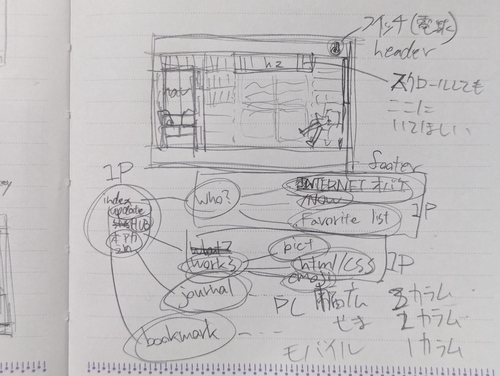 スイッチ(電球)
header
h2
hair
スクロールしても
ここに
いてほしい
footer
1P
index
update
who?
INTERNETオバケ
NOW
Favorite list
1P
works
pict
html/css
emoji
1P
journal
bookmark
PC
3カラム
2カラム
モバイル
1カラム